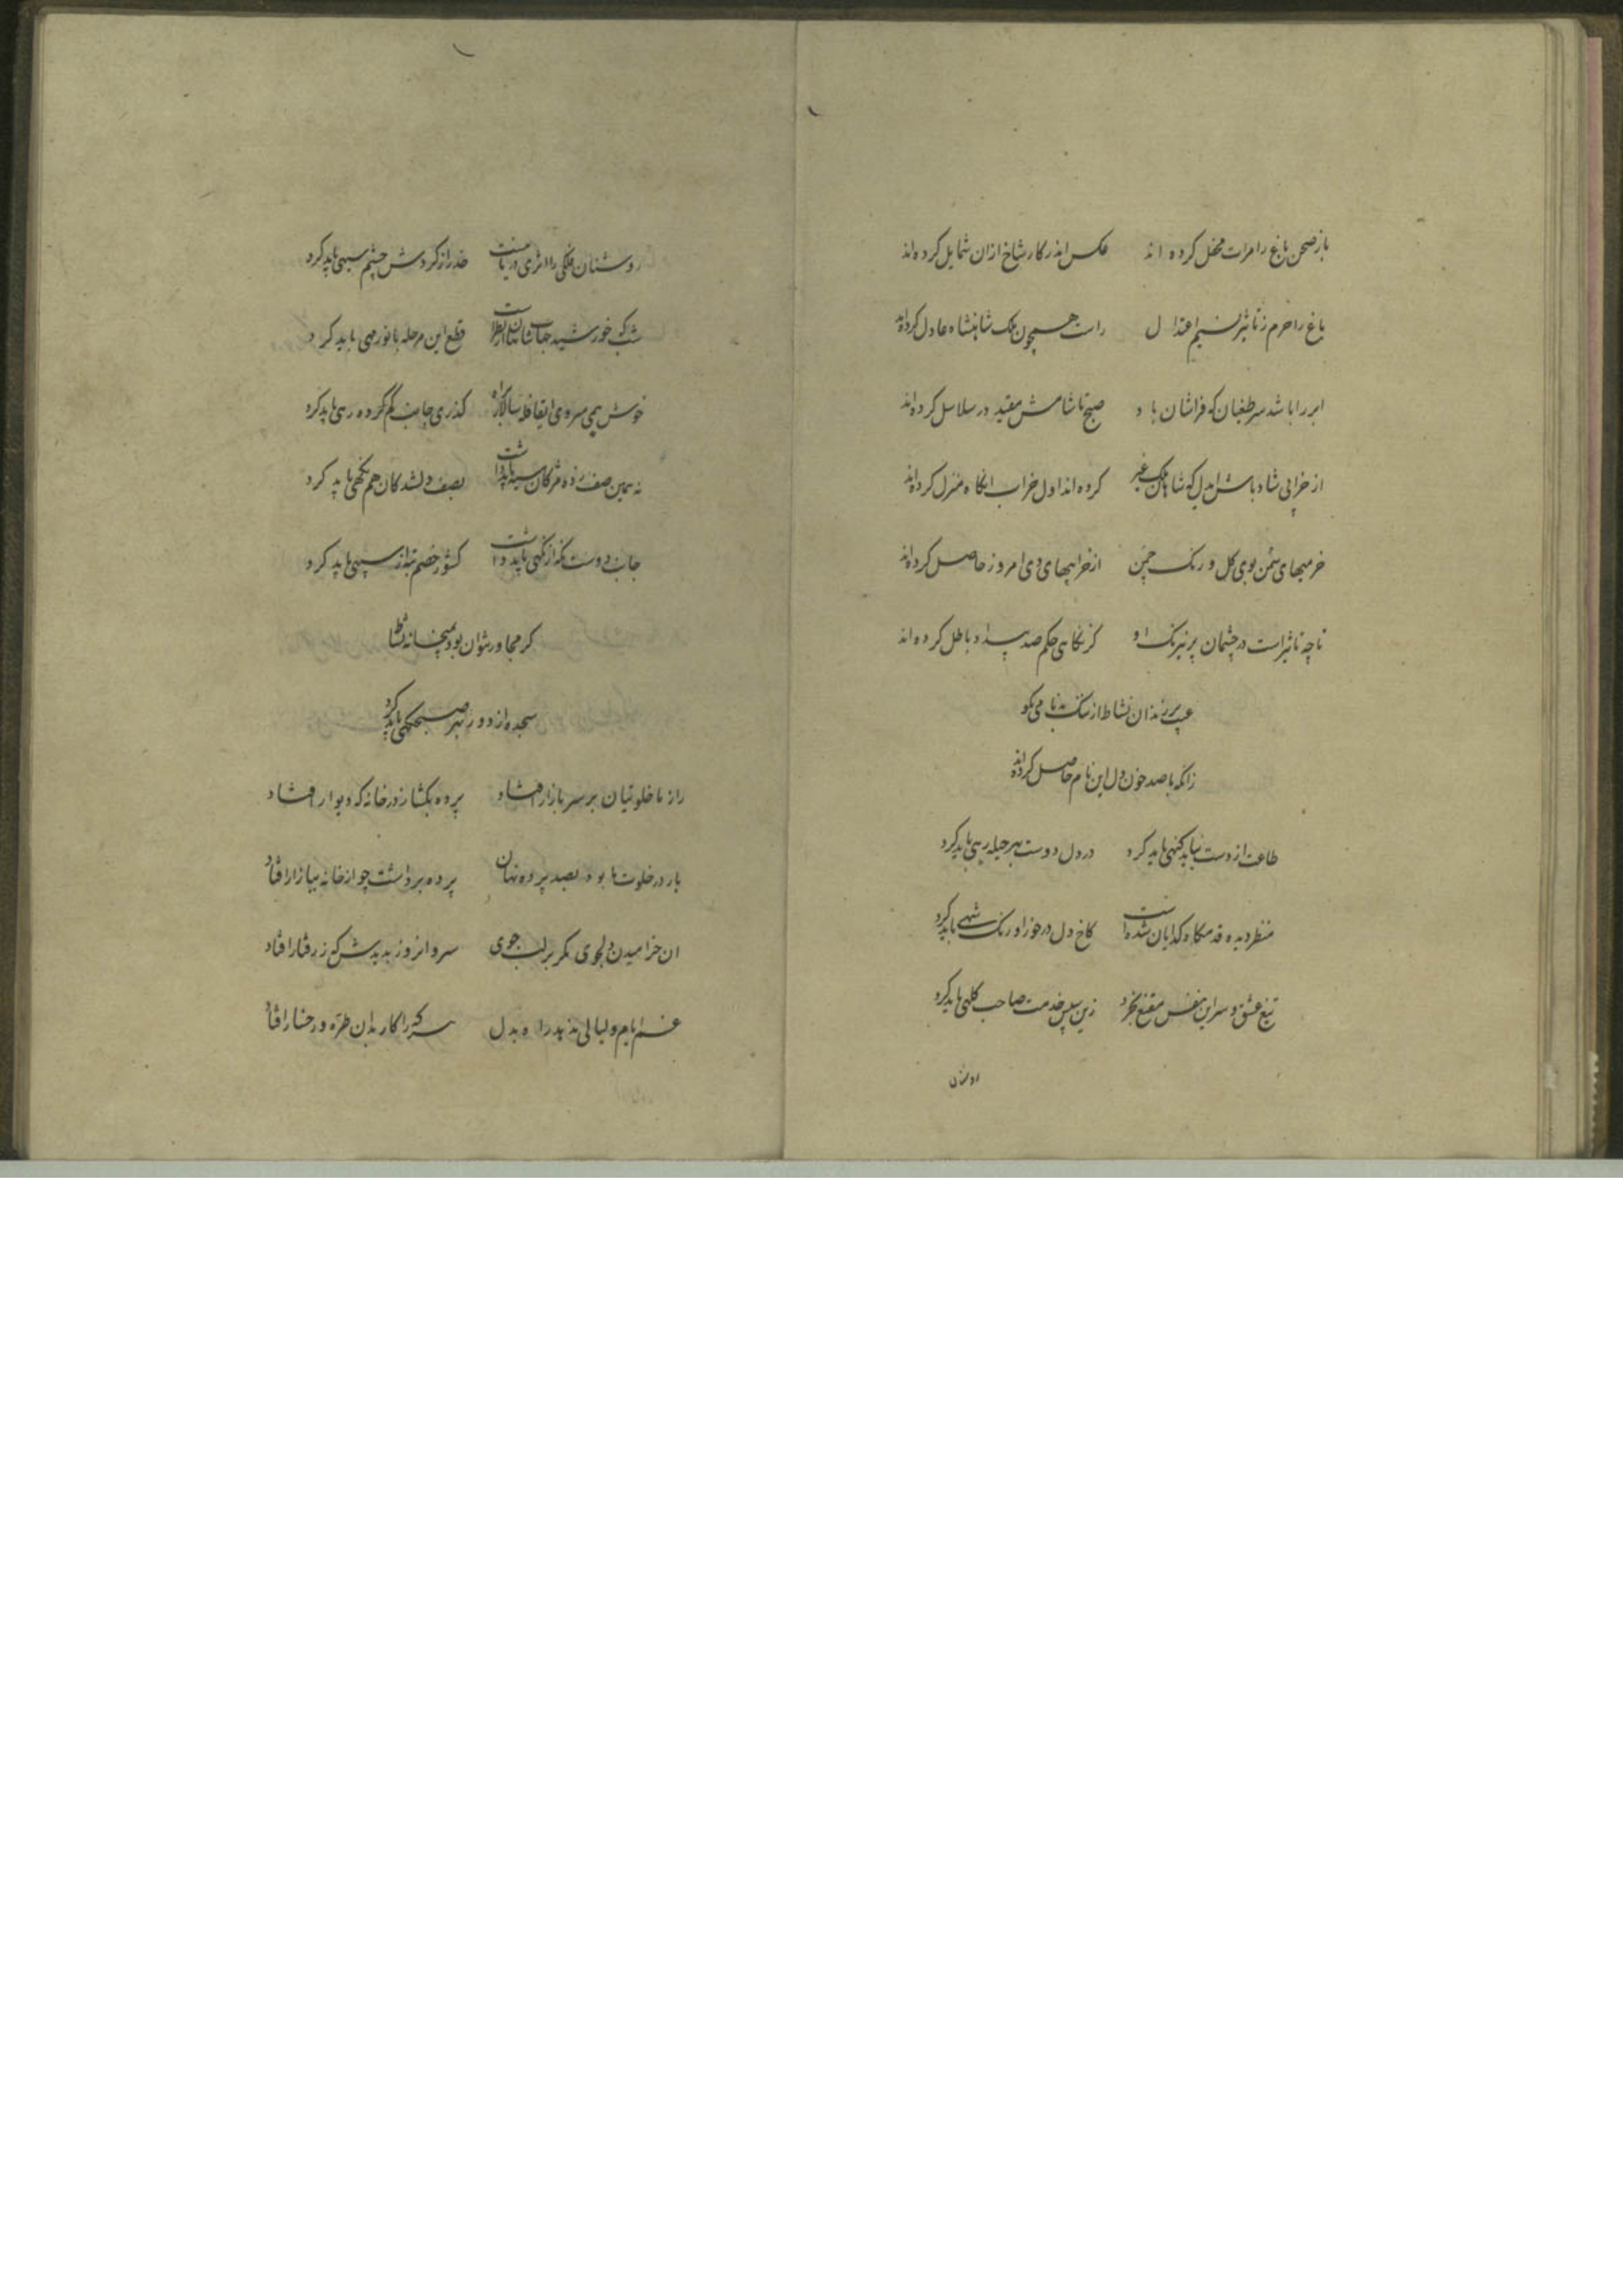 باز صحن باغ را مرات محفل کرده اند عکس اندر کار شاخ ازان شمایل کرده اند
باغ را خرم ز تاثیر نسیم اعتدال راست همچون ملک شاهنشاه عادل کرده اند
ابر را باشد سر طغیان که فراشان باد صبح تا شامش مقید در سلاسل کرده اند
از خرابی شاد باش ایدل که شاهان ملک غیر کرده اند اول خراب انگاه منزل کرده اند
خرمیهای سمن بوی کل و رنک چمن از خرابیهای دی امروز حاصل کرده اند
تا چه تاثیر است در چشمان پر نیرنک او کز نکاهی حکم صد باطل کرده اند
عیب رندان نشاط از ننک بدنامی مکو
زانکه با صد خون دل این نام حاصل کرده اند
طاعت از دست نیاید کنهی باید کرد در دل دوست بهر حیله رهی باید کرد
منظر دیده قدمکاه کدایان شده است کاخ دل در خور اورنک شهی باید کرد
تیغ عشق و سر این نفس مقنع بخرد زین سپس خدمت صاحب کلهی باید کرد
روشنان فلکی را اثری در ما نیست حذر از کردش چشم سیهی باید کرد
شب که خورشید جهانتاب نهان از نظر است قطع این مرحله با نور مهی باید کرد
خوش همی میروی ای قافله سالار براه کذری جانب کم کرده رهی باید کرد
نه همین صف زده مژکان سیه باید داشت بصف دلشدکان هم نکهی باید کرد
جانب دوست نکه از نکهی باید داشت کشور خصم تبه از سپهی باید کرد
کر مجاور نتوان بود بمیخانه نشاط
سجده از دور بهر صبحکهی باید کرد
راز ما خلوتیان بر سر بازار افتاد پرده بکشا ز در خانه که دیوار افتاد
یار در خلوت ما بود بصد پرده نهان پرده برداشت چو از خانه ببازار افتاد
ان خرامیدن دلجوی مکر بر لب جوی سرو انروز بدیدش که ز رفتار افتاد
غم ایام و لیالی ندید راه بدل هر که را کار بدان طره و رخسار افتاد